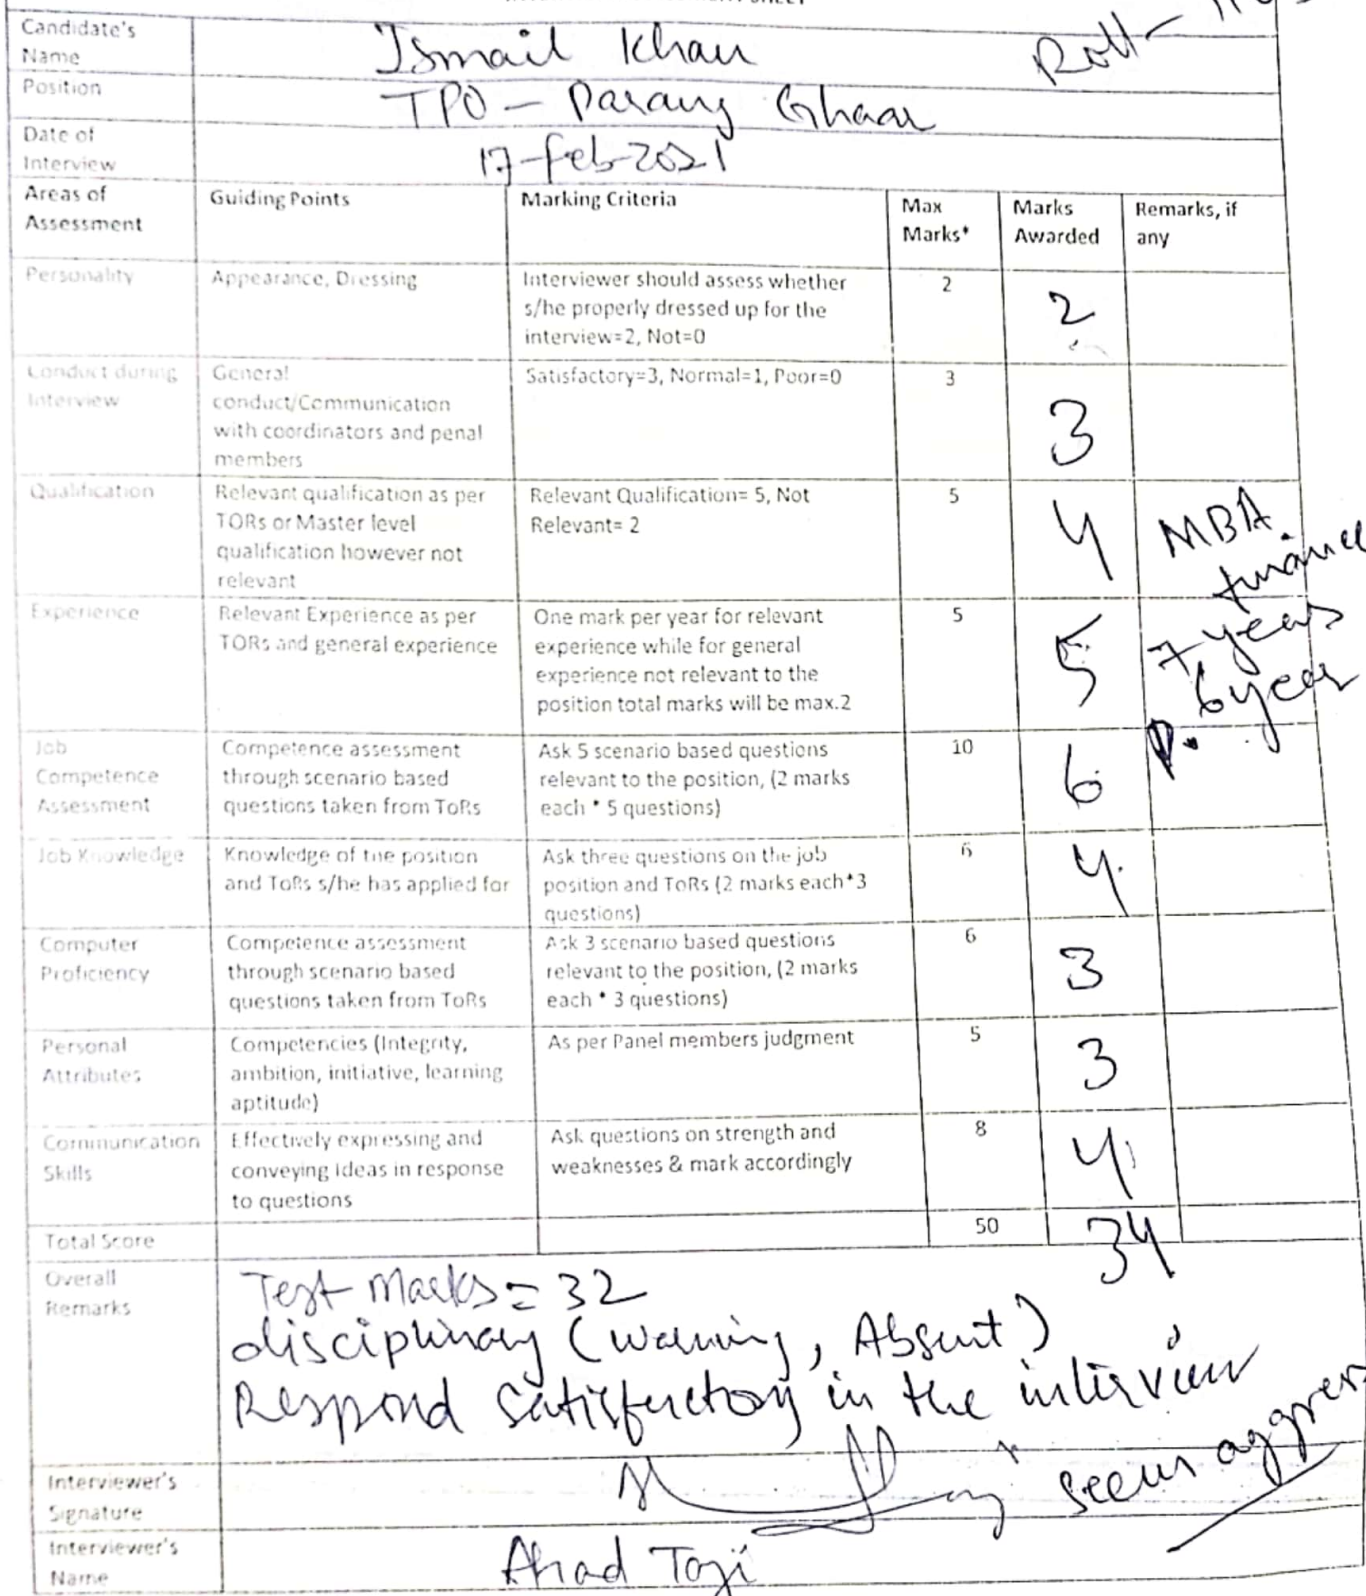 Roll-
Candidate's
Name
Ismail Khan
Position
TPO - Parang Ghaar
Date of
Interview
17-feb-2021
Areas of
Assessment
Guiding Points
Marking Criteria
Max
Marks*
Marks
Awarded
Remarks, if
any
Personality
Appearance, Dressing
Interviewer should assess whether
s/he properly dressed up for the
interview=2, Not=0
2
2
Conduct during
Interview
General
conduct/Communication
with coordinators and penal
members
Satisfactory=3, Normal=1, Poor=0
3
3
Qualification
Relevant qualification as per
TORs or Master level
qualification however not
relevant
Relevant Qualification= 5, Not
Relevant= 2
5
4
MBA
finance
Experience
Relevant Experience as per
TORs and general experience
One mark per year for relevant
experience while for general
experience not relevant to the
position total marks will be max.2
5
5
7 years
6 year
Job
Competence
Assessment
Competence assessment
through scenario based
questions taken from ToRs
Ask 5 scenario based questions
relevant to the position, (2 marks
each * 5 questions)
10
6
Job Knowledge
Knowledge of the position
and ToRs s/he has applied for
Ask three questions on the job
position and ToRs (2 marks each*3
questions)
6
4
Computer
Proficiency
Competence assessment
through scenario based
questions taken from ToRs
Ask 3 scenario based questions
relevant to the position, (2 marks
each * 3 questions)
6
3
Personal
Attributes
Competencies (Integrity,
ambition, initiative, learning
aptitude)
As per Panel members judgment
5
3
Communication
Skills
Effectively expressing and
conveying ideas in response
to questions
Ask questions on strength and
weaknesses & mark accordingly
8
4
Total Score
50
34
Overall
Remarks
Test Marks = 32
disciplinary (warning, Absent)
Respond satisfactory in the interview
seems
Interviewer's
Signature
Interviewer's
Name
Ahad Taji